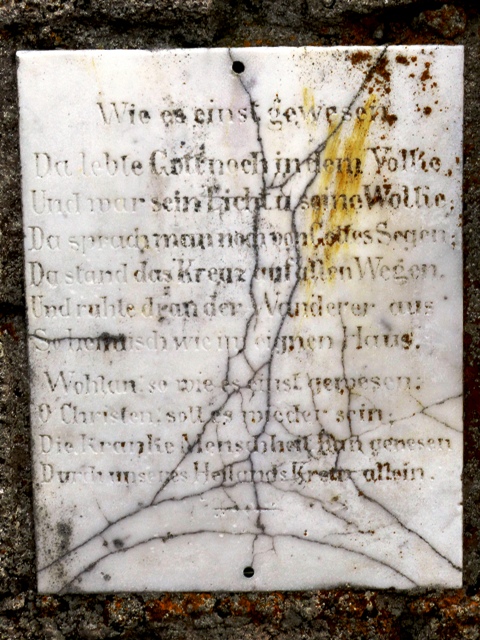 Wie es einst gewesen.
Da lebte Gott noch in dem Volke,
Und war sein Licht u. seine Wolke;
Da sprach man noch von Gottes Segen,
Da stand das Kreuz auf allen Wegen.
Und ruhte dran der Wanderer aus
So heimisch wie im eignen Haus.
Wohlan! so wie es einst gewesen;
O Christen! soll es wieder sein;
Die kranke Menschheit kann genesen
Durch unseres Heilands Kreuz allein.